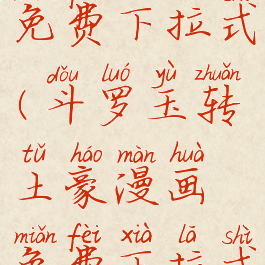 免费下拉式
dǒu luó yù zhuǎn
(斗罗玉转
tǔ háo màn huà
土豪漫画
miǎn fèi xià lā shì
免费下拉式